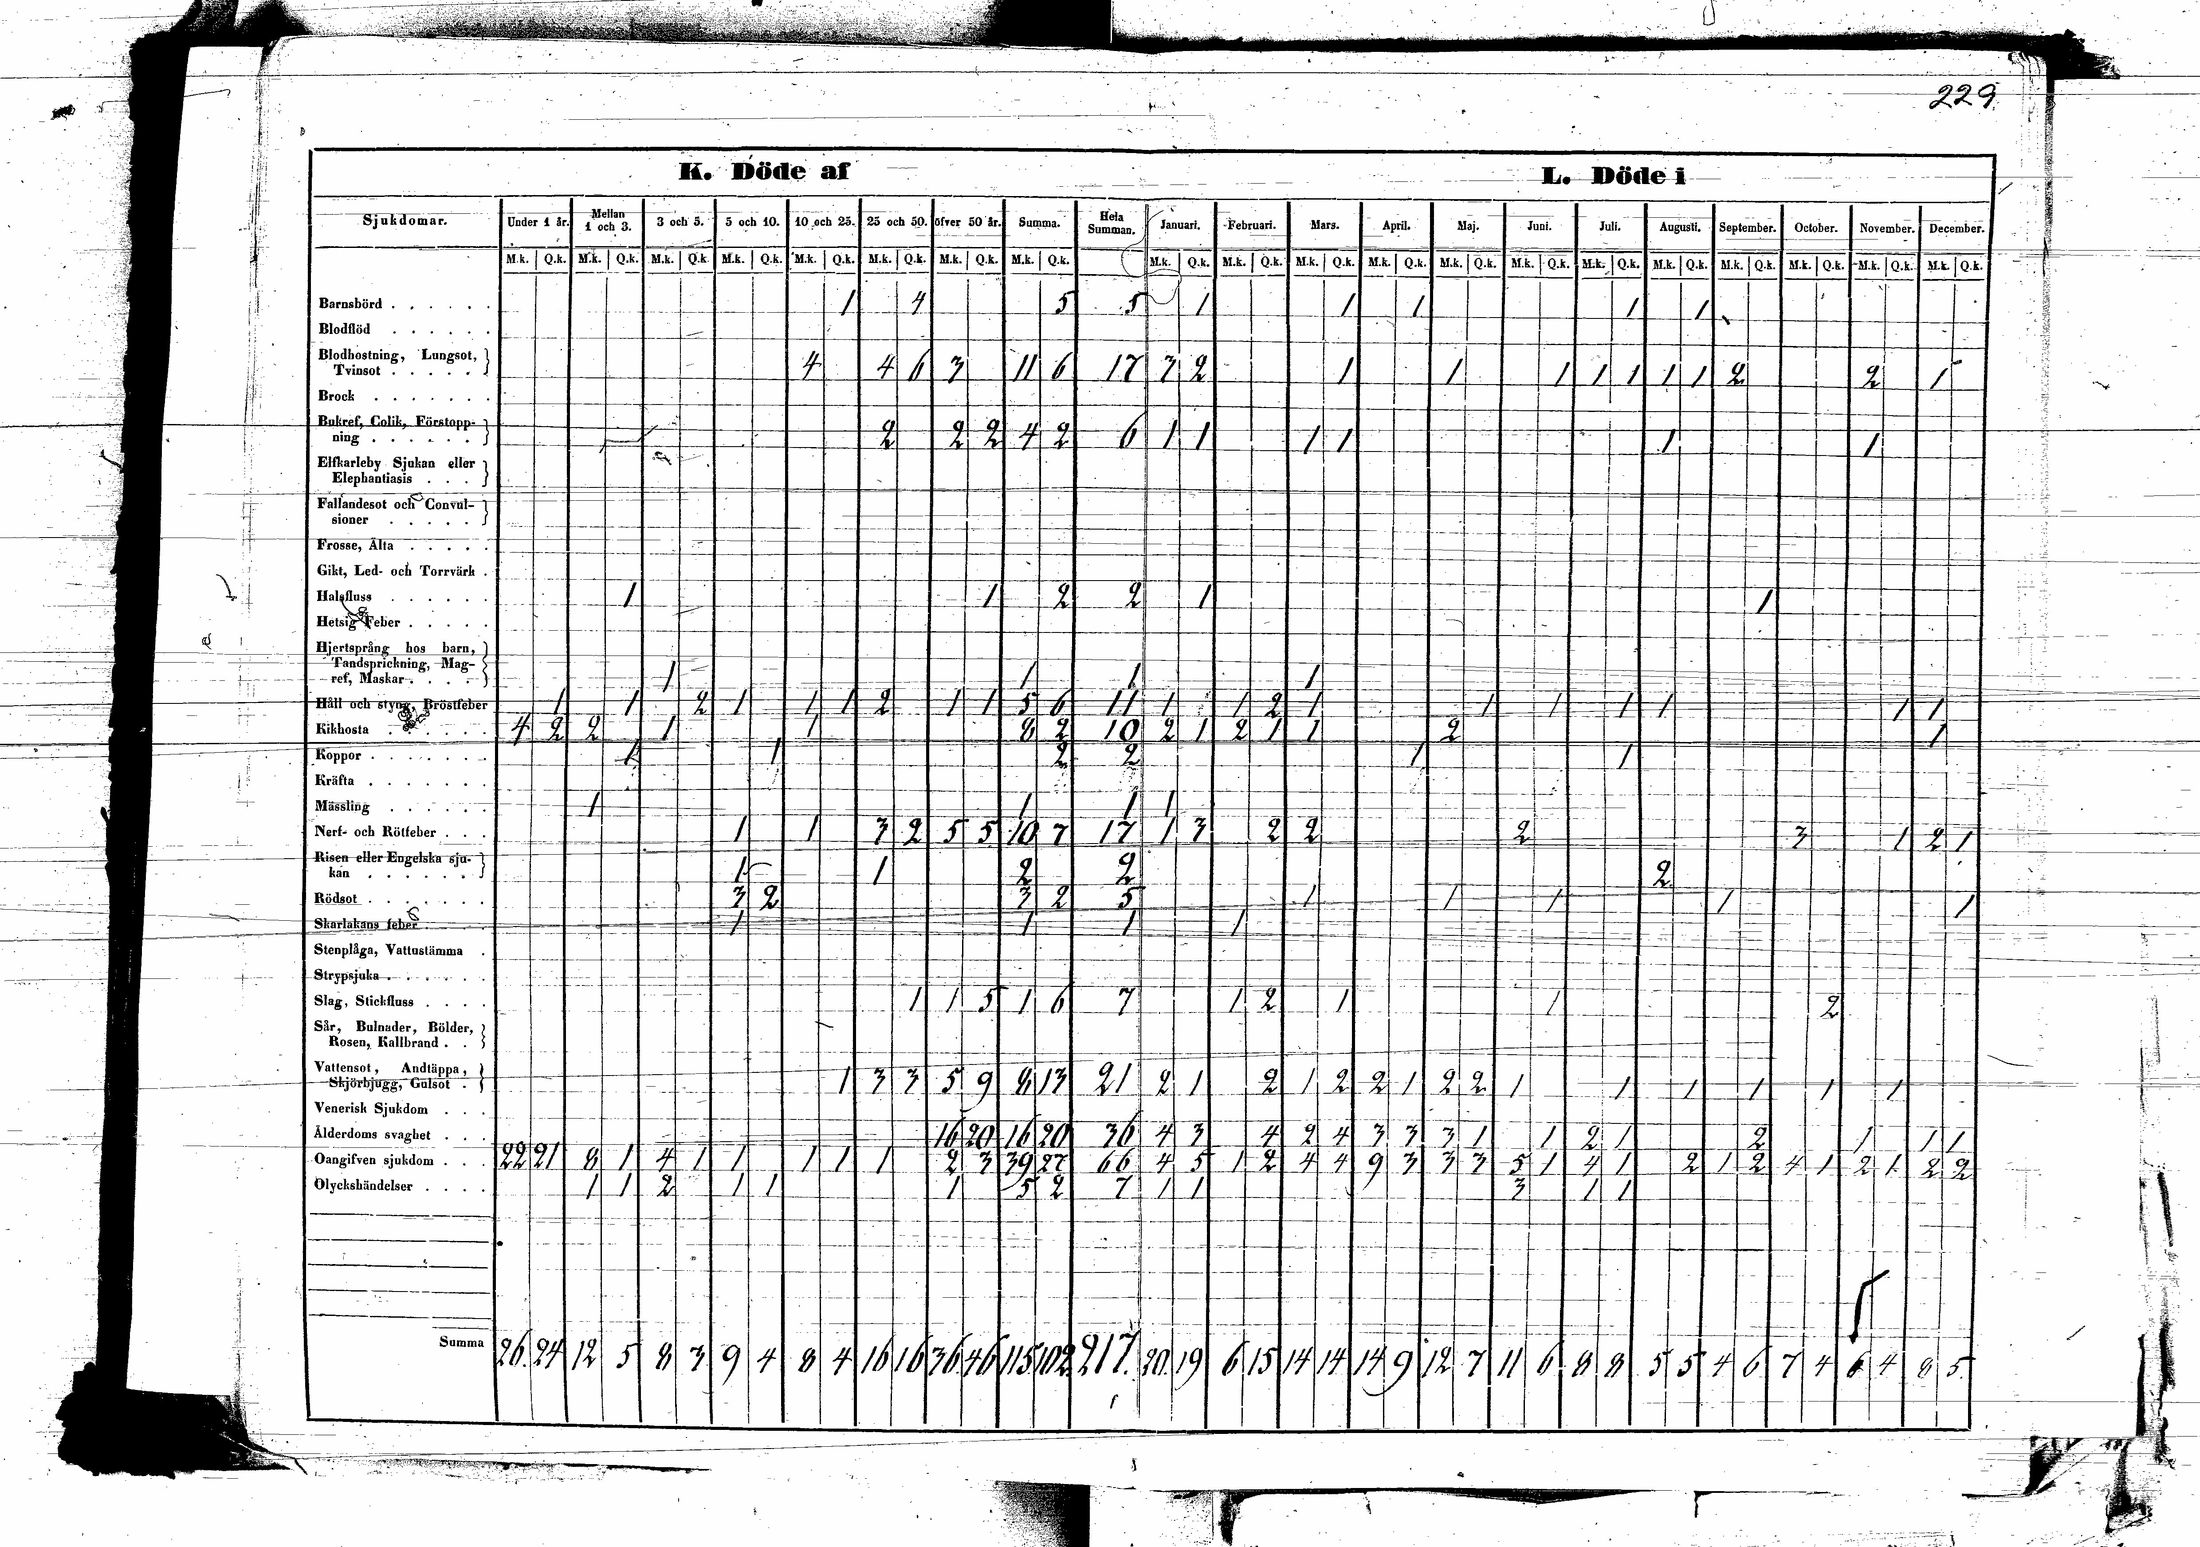 229
K. Döde af L. Döde i
Sjukdomar. Under 1 år. Mellan 1 och 3. 3 och 5. 5 och 10. 10 och 25. 25 och 50. öfver 50 år. Summa. Hela Summan. Januari. Februari. Mars. April. Maj. Juni. Juli. Augusti. September. October. November. December.
M.k. Q.k. M.k. Q.k. M.k. Q.k. M.k. Q.k. M.k. Q.k. M.k. Q.k. M.k. Q.k. M.k. Q.k. M.k. Q.k. M.k. Q.k. M.k. Q.k. M.k. Q.k. M.k. Q.k. M.k. Q.k. M.k. Q.k. M.k. Q.k. M.k. Q.k. M.k. Q.k. M.k. Q.k. M.k. Q.k.
Barnsbörd . . . . . . 1 4 5 5 1 1 1 1 1
Blodflöd . . . . . .
Blodhostning, Lungsot,
Tvinsot . . . . . 4 4 6 3 11 6 17 3 2 1 1 1 1 1 1 1 2 2 1
Brock . . . . . . .
Bukref, Colik, Förstopp-
ning . . . . . . 2 2 2 4 2 6 1 1 1 1 1 1
Elfkarleby Sjukan eller
Elephantiasis . . .
Fallandesot och Convul-
sioner . . . . .
Frosse, Älta . . . . .
Gikt, Led- och Torrvärk .
Halsfluss . . . . . . 1 1 2 2 1 1
Hetsig Feber . . . . .
Hjertsprång hos barn,
Tandsprickning, Mag-
ref, Maskar . . . . 1 1 1 1
Håll och styng, Bröstfeber 1 1 2 1 1 1 2 1 1 5 6 11 1 1 2 1 1 1 1 1 1 1
Kikhosta . . . . . . 4 2 2 1 1 8 2 10 2 1 2 1 1 2 1
Koppor . . . . . . . 1 1 2 2 1 1
Kräfta . . . . . . .
Mässling . . . . . . 1 1 1 1
Nerf- och Rötfeber . . . 1 1 3 2 5 5 10 7 17 1 3 2 2 2 3 1 2 1
Risen eller Engelska sju-
kan . . . . . . 1 1 2 2 2
Rödsot . . . . . . . 3 2 3 2 5 1 1 1 1 1
Skarlakans feber . . . . 1 1 1 1
Stenplåga, Vattustämma .
Strypsjuka . . . . . .
Slag, Stickfluss . . . . 1 1 5 1 6 7 1 2 1 1 2
Sår, Bulnader, Bölder,
Rosen, Kallbrand . .
Vattensot, Andtäppa,
Skjörbjugg, Gulsot . 1 3 3 5 9 8 13 21 2 1 2 1 2 2 1 2 2 1 1 1 1 1 1
Venerisk Sjukdom . . .
Ålderdoms svaghet . . . 16 20 16 20 36 4 3 4 2 4 3 3 3 1 1 2 1 2 1 1 1
Oangifven sjukdom . . . 22 21 8 1 4 1 1 1 1 1 2 3 39 27 66 4 5 1 2 4 4 9 3 3 3 5 1 4 1 2 1 2 4 1 2 1 2 2
Olyckshändelser . . . . 1 1 2 1 1 1 5 2 7 1 1 3 1 1
Summa 26 24 12 5 8 3 9 4 8 4 16 16 36 46 115 102 217. 20 19 6 15 14 14 14 9 12 7 11 6 8 8 5 5 4 6 7 4 6 4 8 5